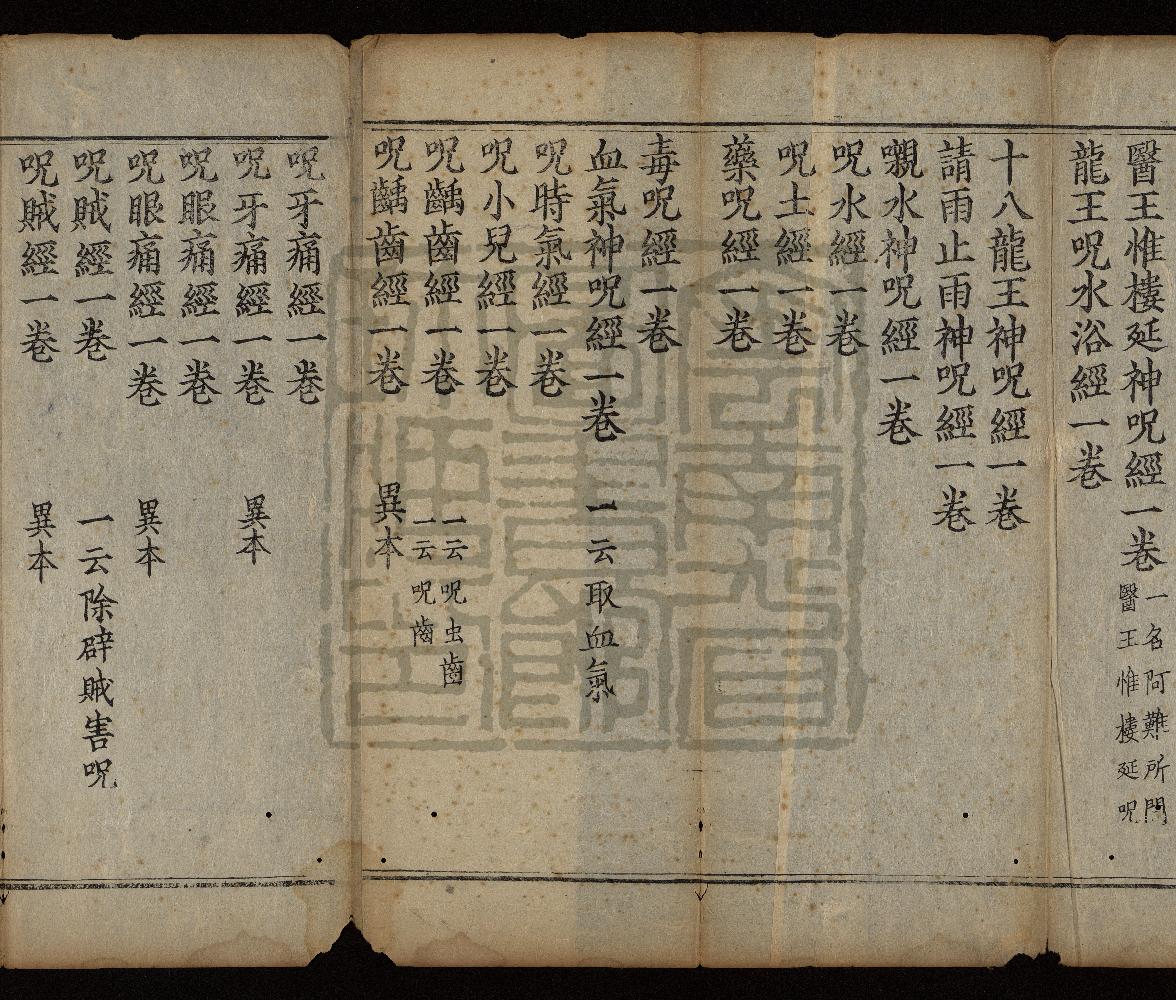 醫王惟樓延神呪經一卷 一名阿難所問醫王惟樓延呪
龍王呪水浴經一卷
十八龍王神呪經一卷
請雨止雨神呪經一卷
嚫水神呪經一卷
呪水經一卷
呪土經一卷
藥呪經一卷
毒呪經一卷
血氣神呪經一卷 一云取血氣
呪時氣經一卷
呪小兒經一卷
呪齲齒經一卷 一云呪虫齒一云呪齒
呪齲齒經一卷 異本
呪牙痛經一卷
呪牙痛經一卷 異本
呪眼痛經一卷
呪眼痛經一卷 異本
呪賊經一卷 一云除辟賊害呪
呪賊經一卷 異本